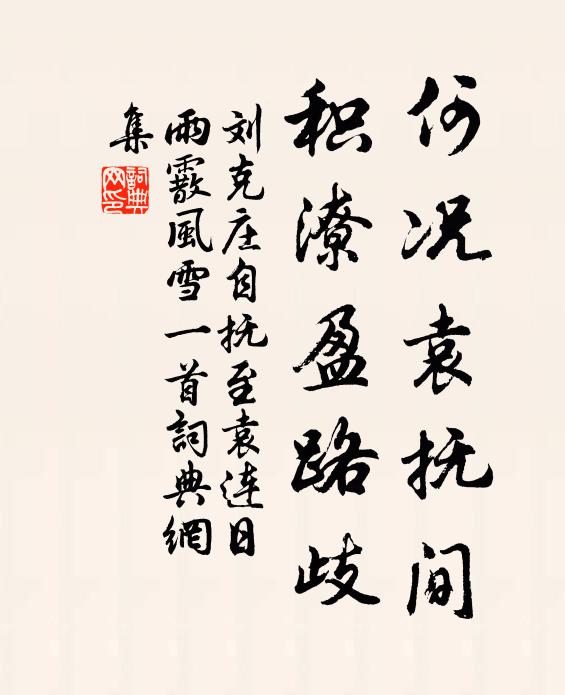 何况袁抚间
积潦盈路歧
刘克庄自抚至袁连日
雨霰風雪一首詞典網
集
詞典网印